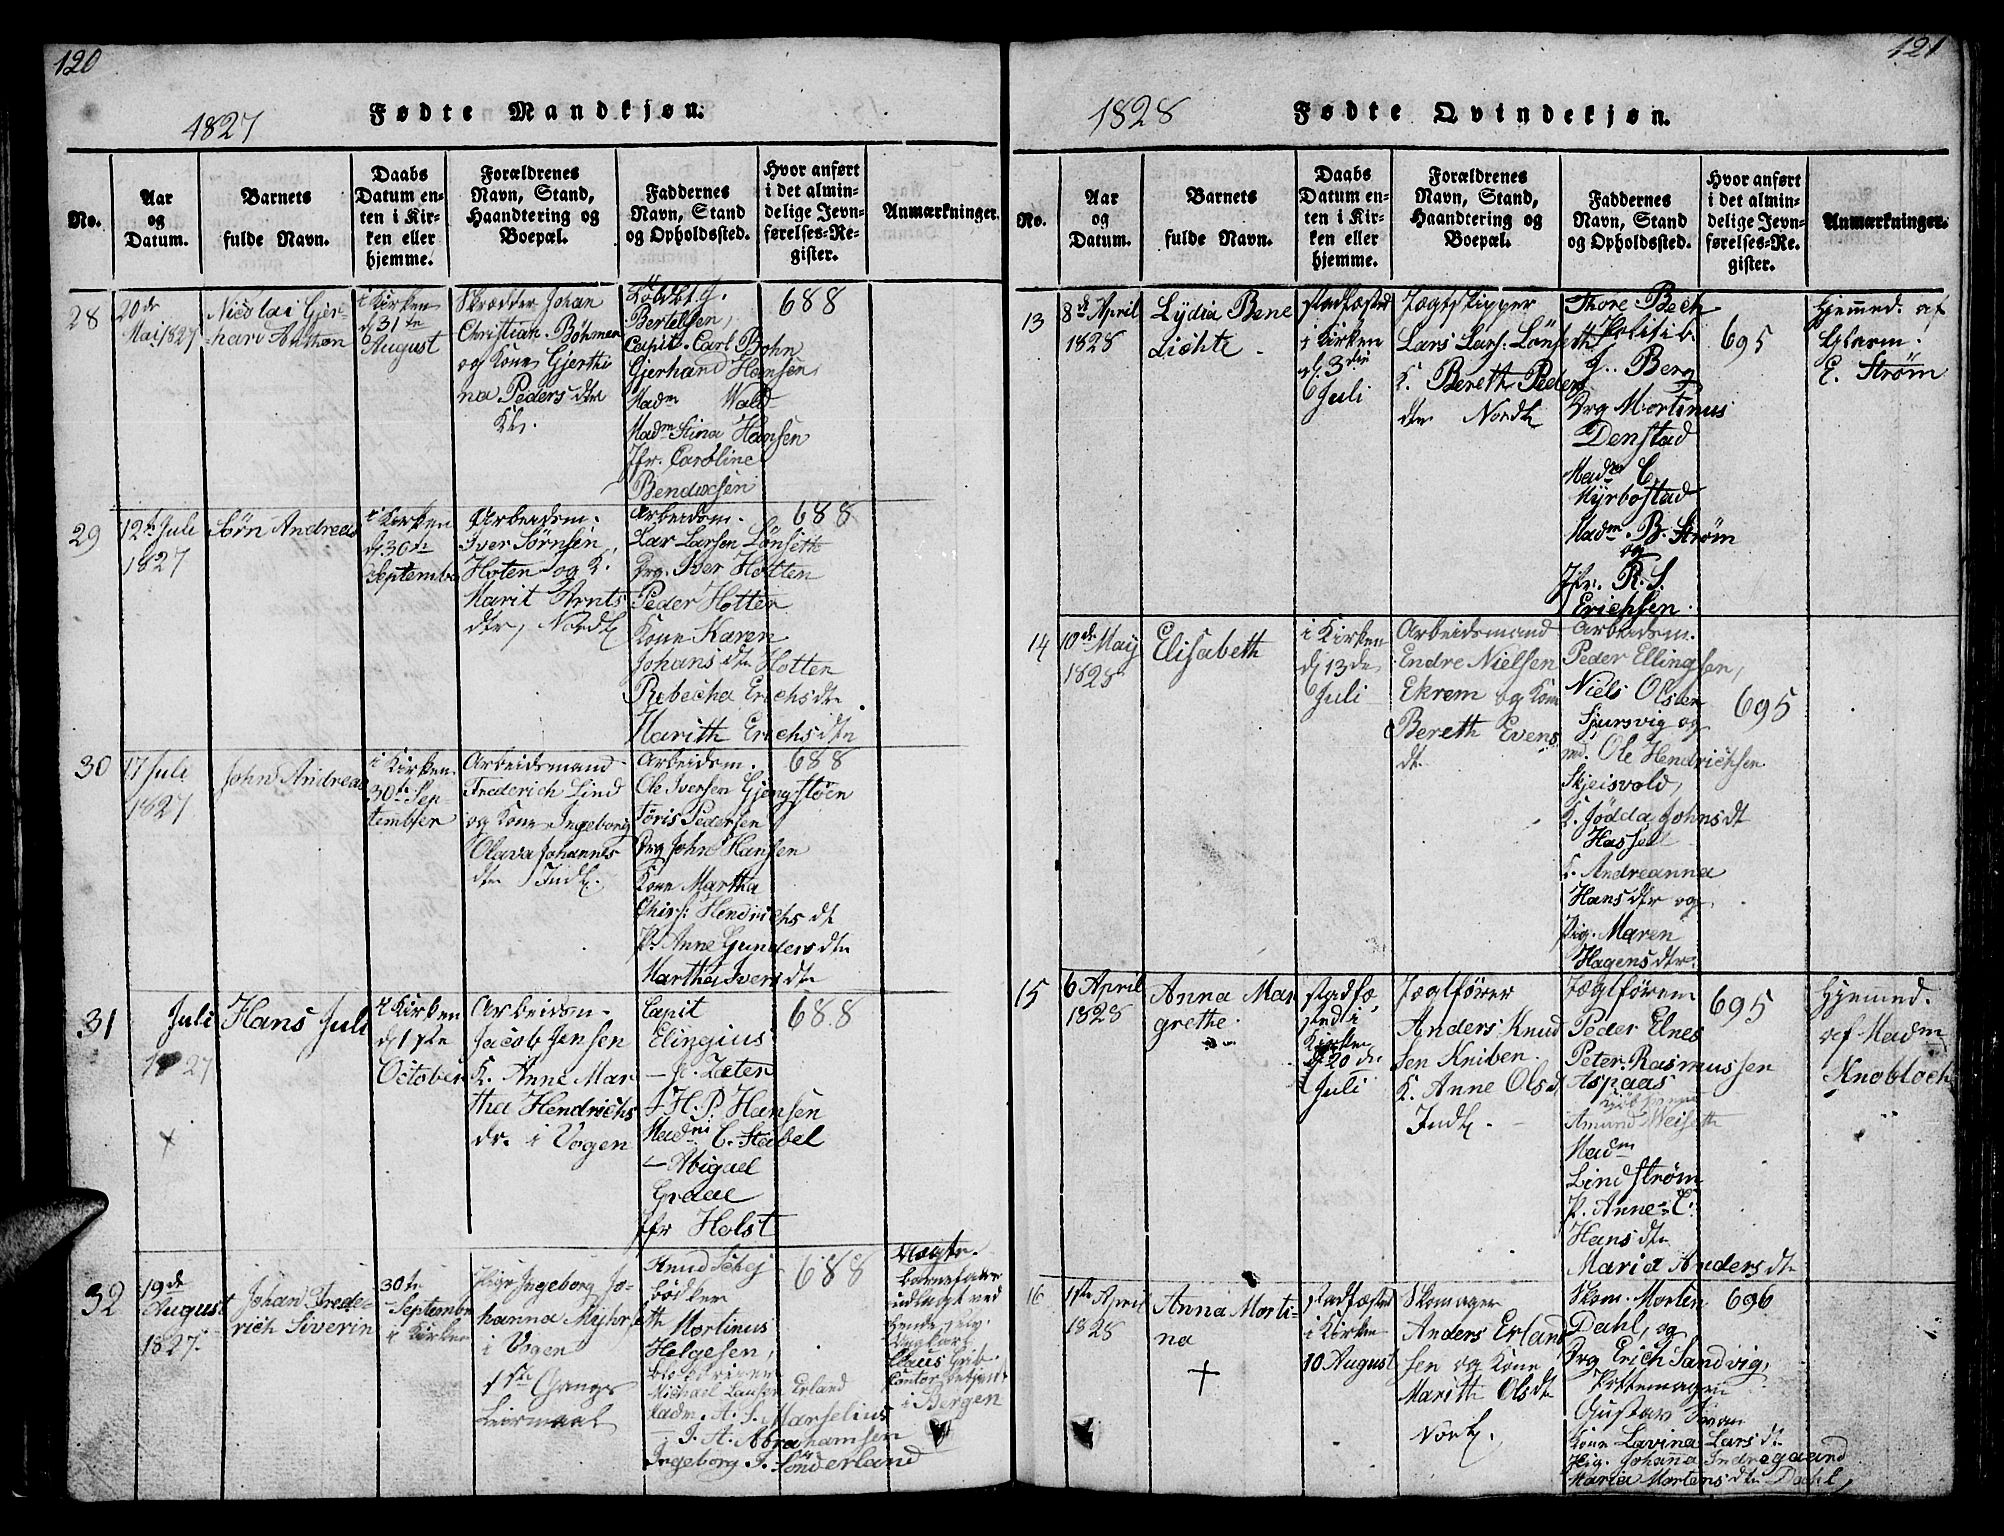 120
1827
Fødte Mandkjøn.
No.
Aar
og
Datum.
Barnets
fulde Navn.
Daabs
Datum en-
ten i Kir-
ken eller
hjemme.
Forældrenes
Navn, Stand,
Haandtering og
Boepæl.
Faddernes
Navn, Stand
og Opholdssted.
Hvor anført
i det almin-
delige Jevn-
førelses-Re-
gister.
Anmærkninger.
28
20de
Mai 1827
Nicolai Gjer-
hart
i Kirken
d. 31te
August
Skrædder Johan
Christian Böhmer
og Kone Gjerthi
na Peders dtr
Ks.
Bertelsen,
Capit. Carl Bohn
Gjerhand Hansen
Madm Wald
Madm Stina Hansen
Jfr. Caroline
Bendixsen
688
29
12te Juli
1827
Sörn Andreas
i Kirken
d. 30te
September
Arbeidsm.
Iver Sörnsen,
Hoten og K.
Marit Arnts
dtr, Nordl
Arbeidsm.
Lar Larsen Lönseth
Drg. Iver Hotten
Peder Hotten
Kone Karen
Johans dtr Hotten
Rebecha Erichs dtr
Marith Erichs dtr
688
30
17 Juli
1827
John Andreas
i Kirken
30te Sep-
tember
Arbeidsmand
Frederich Lind
og Kone Ingeborg
Olava Johannes
dtr Indl.
Arbeidsm.
Ole Iversen Gjengstöen
Joris Pedersen
Drg John Hansen
Kone Martha
Chirs: Hendrichs dt
P. Anne Gunders dtr
Martha Ivers dtr
688
31
Juli
1827
+
Hans Juli
i Kirken
d. 1ste
October
Arbeidsm.
Jacob Jensen
K. Anne Mar
tha Hendrichs
dr. i Vogen
Capit
Elingius
— J. Zæter
J. H. P. Hansen
Madm C. Stabel
— Abigael
Graae
Jfr Holst
688
32
19de
August
1827.
Johan Frede-
rich Siverin
30te
September
i Kirken
Pige Ingeborg Jo-
hanna Myhre
i Vogen
1ste Gangs
Leiermaal
Knud Schej
bödker
Mortinus
Helgesen,
Michael Larsen Erland
Madm. A. S. Marselius
— J. A. Abrahamsen
Ingeborg J. Sönderland
688
Barnefader
udlagt ved
Ungkarl
Claus Grib
i Bergen
121
1828
Fødte Qvindekjøn.
No.
Aar
og
Datum.
Barnets
fulde Navn.
Daabs
Datum en-
ten i Kir-
ken eller
hjemme.
Forældrenes
Navn, Stand,
Haandtering og
Boepæl.
Faddernes
Navn, Stand
og Opholdssted.
Hvor anført
i det almin-
delige Jevn-
førelses-Re-
gister.
Anmærkninger.
13
8de April
1828
Lydia Bene
Lichte
stadfæstet
i Kirken
d. 3die
Juli
Jægtskipper
Lars Lars. Lönseth
K. Bereth Peders
dtr Nordl
Thore Bech
Politib.
J. Berg
Drg Mortinus
Denstad
Madm C
Myrbostad
Madm B. Strøm
og
Jfr. R. S.
Erichsen.
695
Hjemmed. af
E. Strøm
14
10de May
1828
Elisabeth
i Kirken
d. 13de
Juli
Arbeidsmand
Endre Nielsen
Ekrem og Kone
Bereth Evens
dt.
Arbeidsm.
Peder Ellingsen,
Niels Olsen
Sjursvig og
Ole Hendrichsen
Skjeisvold,
K. Jödda Johns dt
Hassel
K. Andreanna
Hans dtr og
Pig. Maren
Hagens dtr.
695
15
6 April
1828
Anna Mar
grethe.
stadfæ
sted i
Kirken
d. 20de
Juli
Jægtfører
Anders Knud
sen Kniben.
K. Anne Olsdt
Indl.
Jægtførern
Peder Elnes
Peter Rasmussen
Aspaas
Amund Weiseth
Madm
Lindstrøm
P. Anne C.
Hans dtr
Maria Anders dtr
695
Hjemmed.
af Madm
Knobloch
16
1ste April
1828
Anna Morti-
na
+
stadfæstet
i Kirken
10 August
Skomager
Anders Erland
sen og Kone
Marith Olsdtr
Nordl.
Skom. Morten
Dahl, og
Drg Erich Sandvig,
Pottemager
Gustav Svan
Kone Lavina Lars dt
Pig. Johanna Indregaard
Maria Mortens dtr Dahl,
696